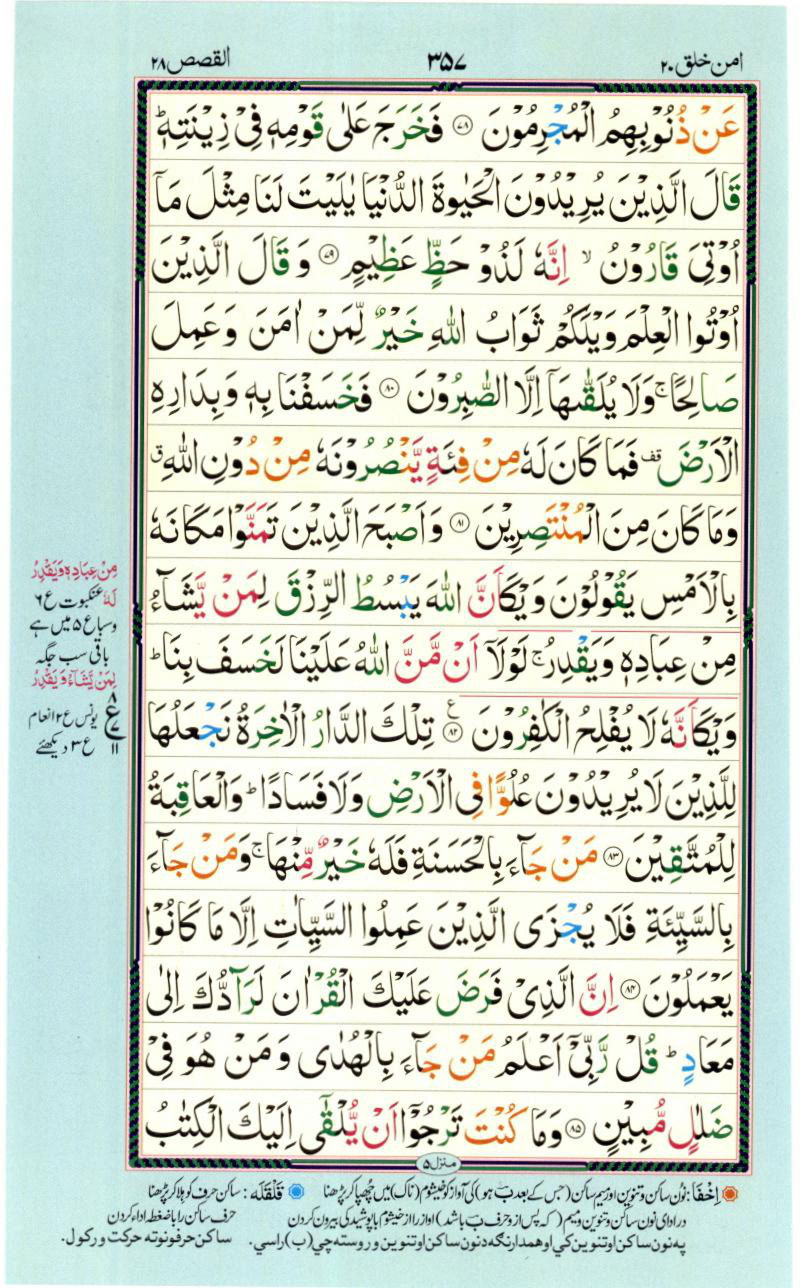 امن خلق ۲۰
۳۵۷
القصص ۲۸
عَنْ ذُنُوْبِهِمُ الْمُجْرِمُوْنَ ﴿۷۸﴾ فَخَرَجَ عَلٰى قَوْمِهٖ فِیْ زِیْنَتِهٖ ؕ
قَالَ الَّذِیْنَ یُرِیْدُوْنَ الْحَیٰوةَ الدُّنْیَا یٰلَیْتَ لَنَا مِثْلَ مَاۤ
اُوْتِیَ قَارُوْنُ ۙ اِنَّهٗ لَذُوْ حَظٍّ عَظِیْمٍ ﴿۷۹﴾ وَ قَالَ الَّذِیْنَ
اُوْتُوا الْعِلْمَ وَیْلَكُمْ ثَوَابُ اللّٰهِ خَیْرٌ لِّمَنْ اٰمَنَ وَ عَمِلَ
صَالِحًا ۚ وَ لَا یُلَقّٰىهَاۤ اِلَّا الصّٰبِرُوْنَ ﴿۸۰﴾ فَخَسَفْنَا بِهٖ وَ بِدَارِهِ
الْاَرْضَ ۫ فَمَا كَانَ لَهٗ مِنْ فِئَةٍ یَّنْصُرُوْنَهٗ مِنْ دُوْنِ اللّٰهِ ۗ
وَ مَا كَانَ مِنَ الْمُنْتَصِرِیْنَ ﴿۸۱﴾ وَ اَصْبَحَ الَّذِیْنَ تَمَنَّوْا مَكَانَهٗ
بِالْاَمْسِ یَقُوْلُوْنَ وَیْكَاَنَّ اللّٰهَ یَبْسُطُ الرِّزْقَ لِمَنْ یَّشَآءُ
مِنْ عِبَادِهٖ وَ یَقْدِرُ ۚ لَوْلَاۤ اَنْ مَّنَّ اللّٰهُ عَلَیْنَا لَخَسَفَ بِنَا ؕ
وَیْكَاَنَّهٗ لَا یُفْلِحُ الْكٰفِرُوْنَ ﴿۸۲﴾ ع تِلْكَ الدَّارُ الْاٰخِرَةُ نَجْعَلُهَا
لِلَّذِیْنَ لَا یُرِیْدُوْنَ عُلُوًّا فِی الْاَرْضِ وَ لَا فَسَادًا ؕ وَ الْعَاقِبَةُ
لِلْمُتَّقِیْنَ ﴿۸۳﴾ مَنْ جَآءَ بِالْحَسَنَةِ فَلَهٗ خَیْرٌ مِّنْهَا ۚ وَ مَنْ جَآءَ
بِالسَّیِّئَةِ فَلَا یُجْزَى الَّذِیْنَ عَمِلُوا السَّیِّاٰتِ اِلَّا مَا كَانُوْا
یَعْمَلُوْنَ ﴿۸۴﴾ اِنَّ الَّذِیْ فَرَضَ عَلَیْكَ الْقُرْاٰنَ لَرَآدُّكَ اِلٰى
مَعَادٍ ؕ قُلْ رَّبِّیْۤ اَعْلَمُ مَنْ جَآءَ بِالْهُدٰى وَ مَنْ هُوَ فِیْ
ضَلٰلٍ مُّبِیْنٍ ﴿۸۵﴾ وَ مَا كُنْتَ تَرْجُوْۤا اَنْ یُّلْقٰۤى اِلَیْكَ الْكِتٰبُ
مِنْ عِبَادِهٖ وَیَقْدِرُ
لَهٗ عنکبوت ع ۶
وسباع ۵ میں ہے
باقی سب جگہ
لِمَنْ یَّشَآءُ وَ یَقْدِرُ
۸
ع
۷
۱۱
یونس ع ۲ انعام
ع ۳ دیکھئے
منزل ۵
اِخْفَا: نُون ساکن و تنوین اور میم ساکن (جس کے بعد بَ ہو) کی آواز کو خیشوم (ناک) میں چُھپا کر پڑھنا
قَلْقَلَه: ساکن حرف کو ہلا کر پڑھنا
درادای نون ساکن و تنوین و میم (که پس از و حرف بَ باشد) آواز را از خیشوم باپوشیدگی بیرون کردن
حرف ساکن را باضغطه ادا کردن
په نون ساکن او تنوین کي او همدارنګه د نون ساکن او تنوین وروسته چي (ب) راسي.
ساکن حرفو نوته حرکت ورکول.